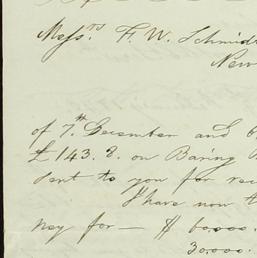 Messrs. F. W. Schmidt
New
of 7th December and
£143. 8. on Baring
sent to you for
I have now
ney for — $ 60.000.
30.000.